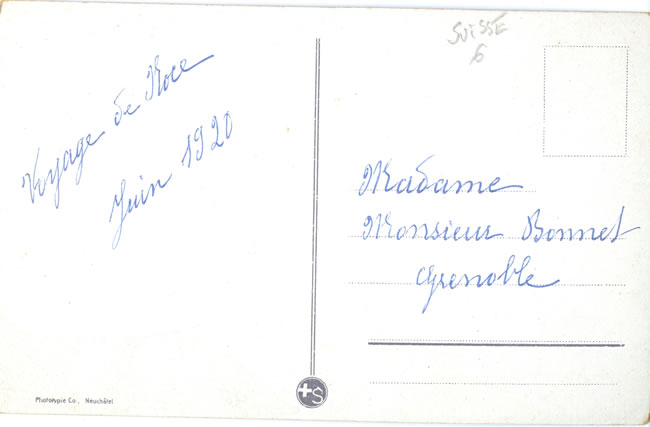 SUISSE
6
Voyage de Noce
Juin 1920
Madame
Monsieur Bonnet
Grenoble
Phototypie Co., Neuchâtel
+S